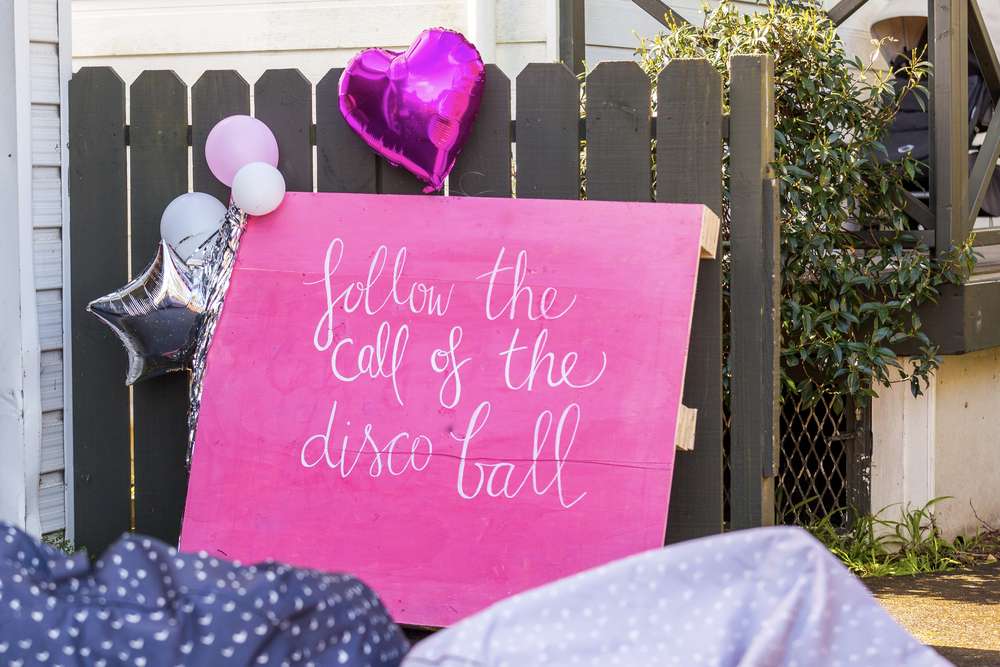 follow the
call of the
disco ball